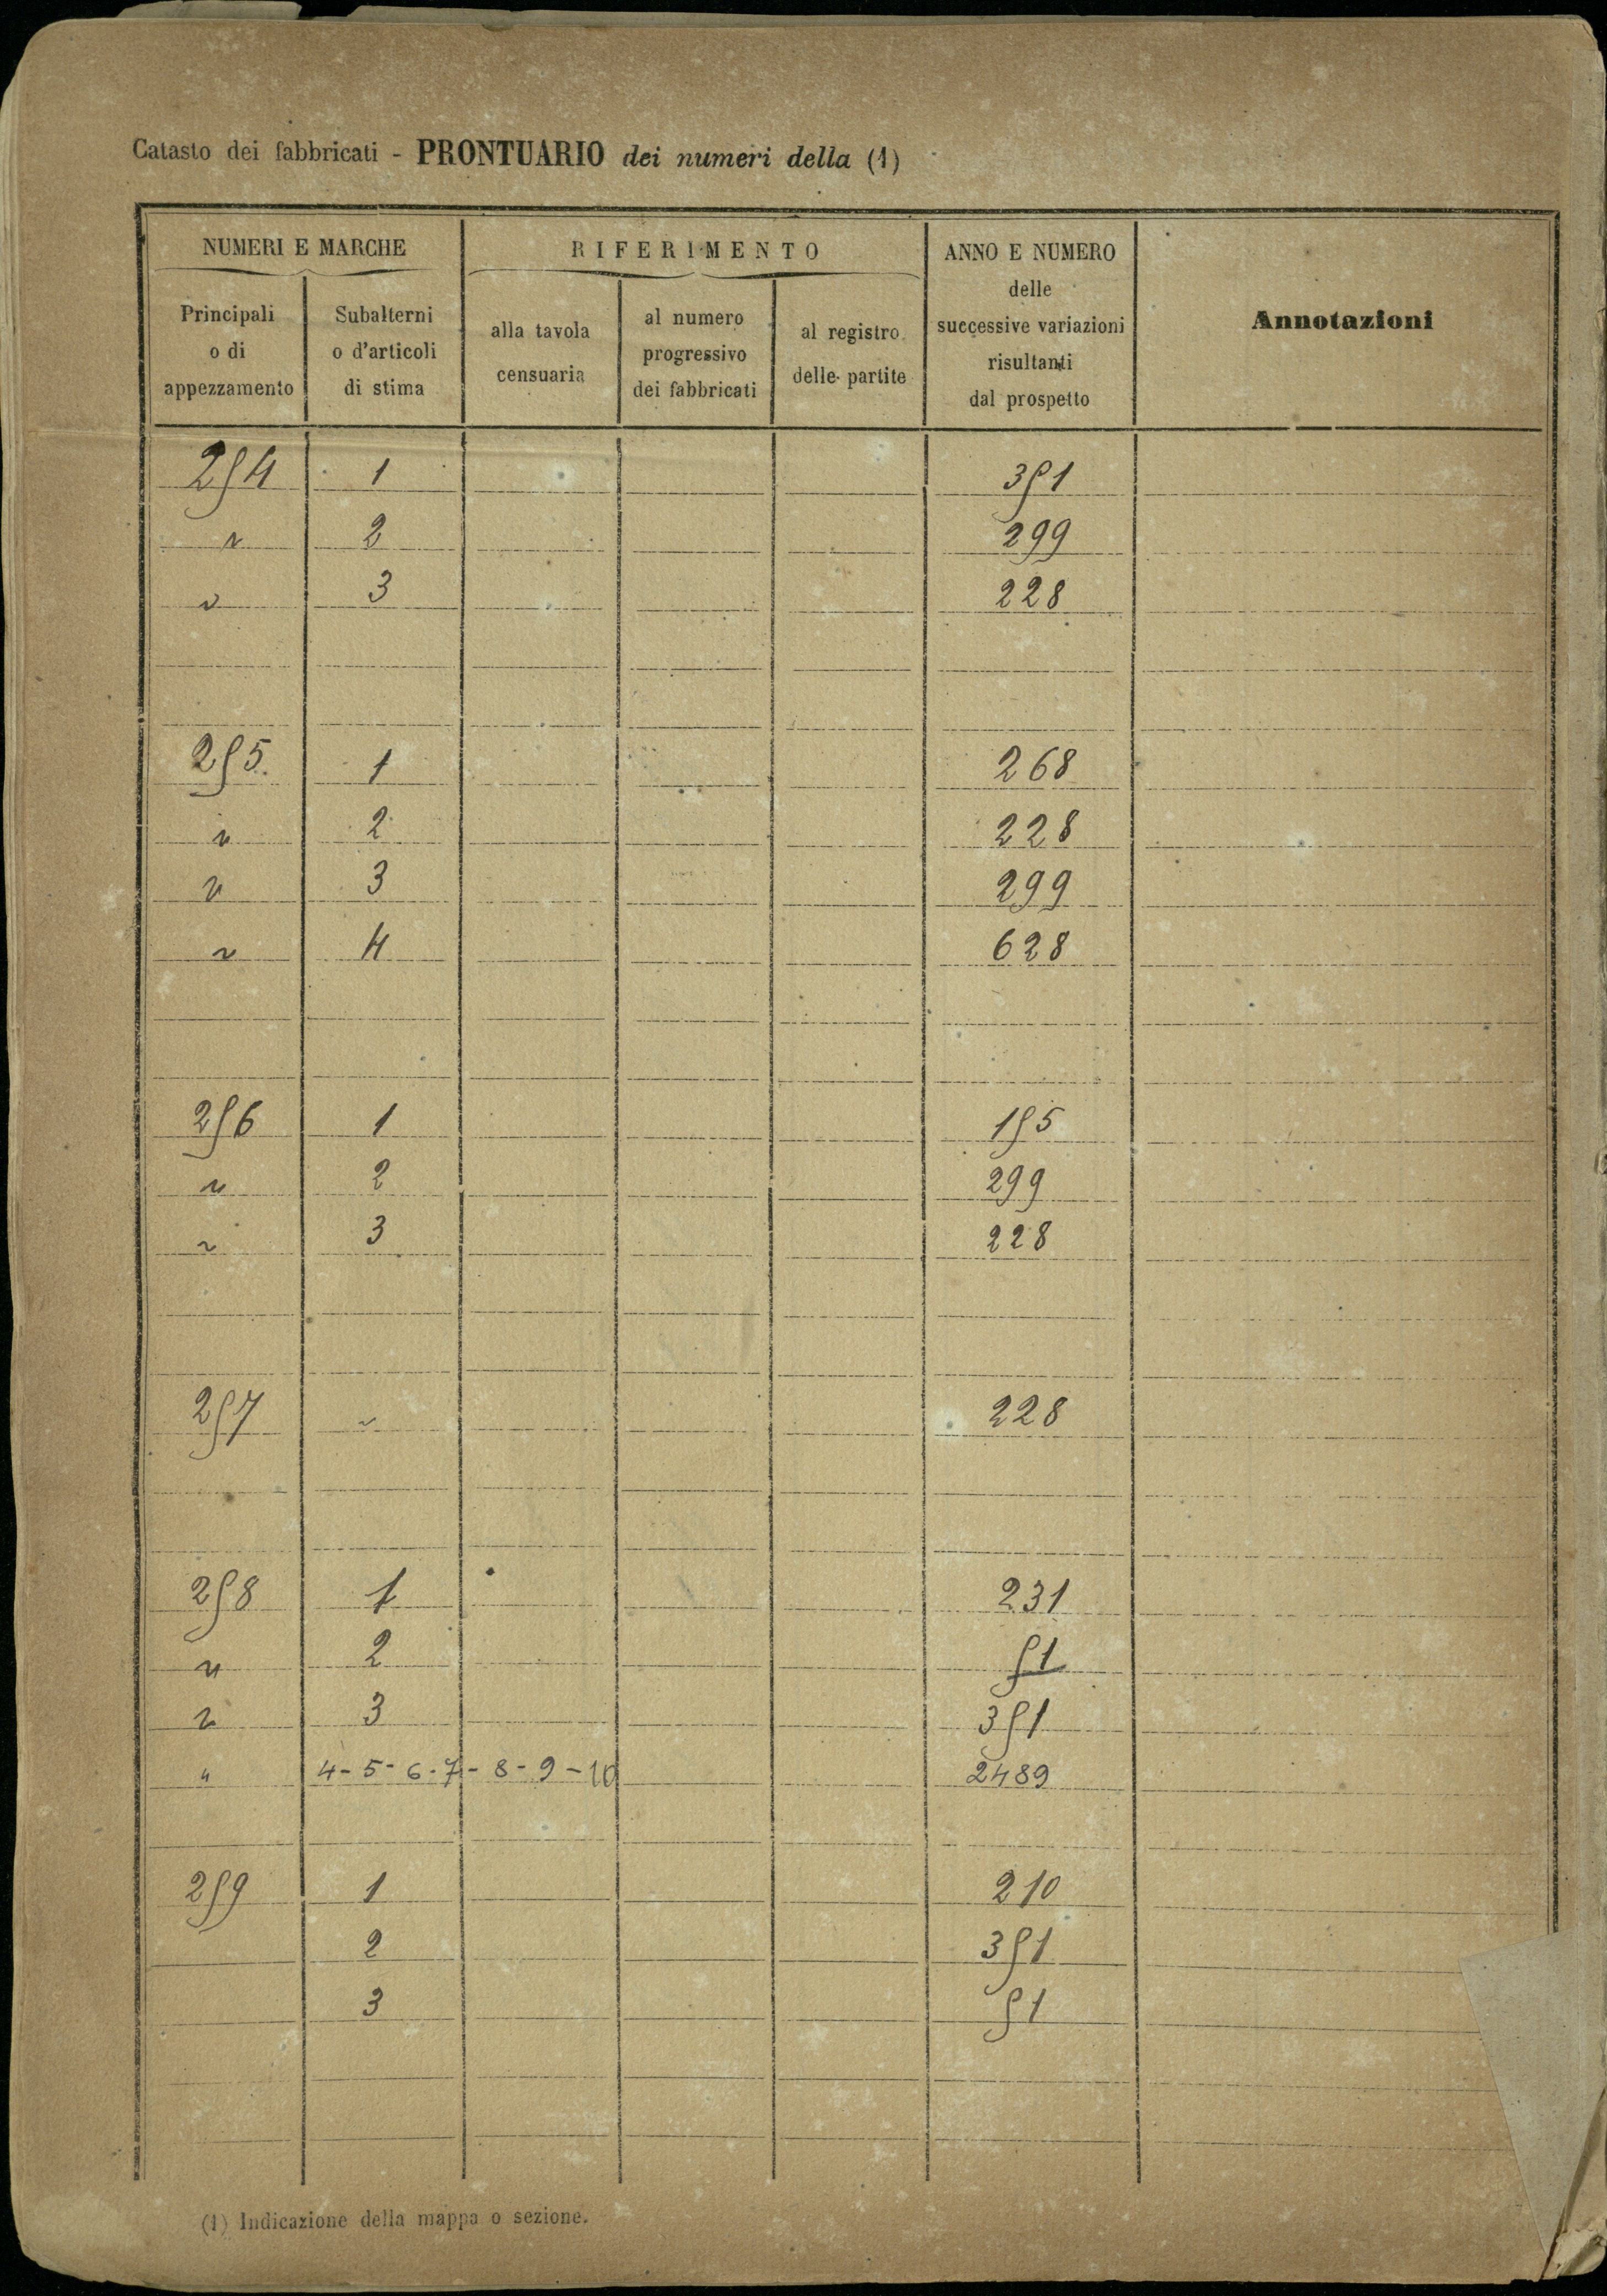 Catasto dei fabbricati - PRONTUARIO dei numeri della (1)
NUMERI E MARCHE
RIFERIMENTO
ANNO E NUMERO
delle
successive variazioni
risultanti
dal prospetto
Annotazioni
Principali
o di
appezzamento
Subalterni
o d'articoli
di stima
alla tavola
censuaria
al numero
progressivo
dei fabbricati
al registro
delle partite
254 1 351
" 2 299
" 3 228
255. 1 268
" 2 228
" 3 299
" 4 628
256 1 155
" 2 299
" 3 228
257 " 228
258 1 231
" 2 51
" 3 351
" 4-5-6-7-8-9-10 2489
259 1 210
2 351
3 51
(1) Indicazione della mappa o sezione.